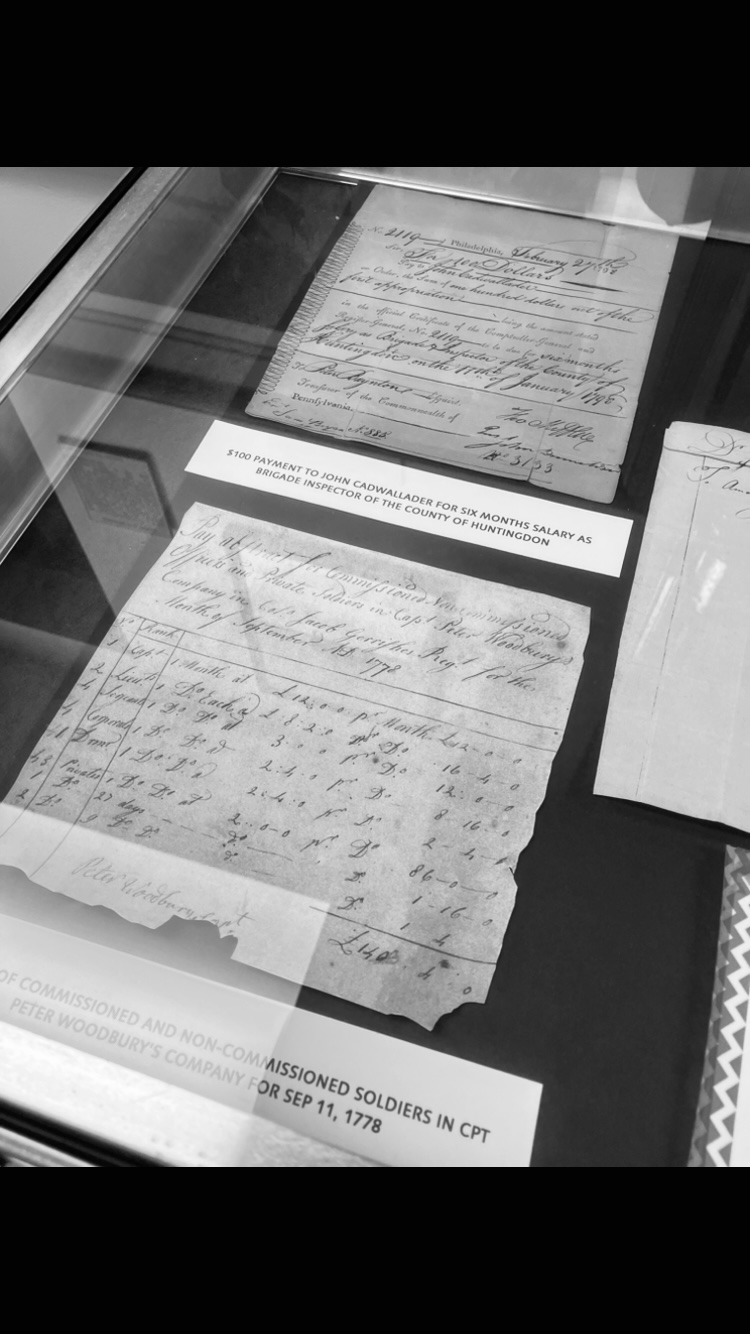 No. 2119 Philadelphia, February 27th
For 100 Dollars
Pay to John Cadwallader
or Order, the Sum of one hundred dollars out of the
first appropriation
being the amount
in the official Certificate of the Comptroller General and
Register General, No. 2119 six months
Salary as Brigade Inspector of the County of
Huntingdon on the 11th of January 1798
To Peter Baynton Esquire,
Treasurer of the Commonwealth of
Pennsylvania.
$100 PAYMENT TO JOHN CADWALLADER FOR SIX MONTHS SALARY AS
BRIGADE INSPECTOR OF THE COUNTY OF HUNTINGDON
Pay abstract for Commissioned Non Commissioned
Officers and Private Soldiers in Capt Peter Woodbury's
Company in Col. Jacob Gerrishes Regt. for the
Month of September A.D. 1778
No. Rank
1 Capt. 1 Month at £12..0..0 pr Month £12..0..0
2 Lieut. 1 Do. Each @ £8..2..0 pr Do 16..4..0
4 Serjeants 1 Do. Do. at 3..0..0 pr Do 12..0..0
4 Corporals 1 Do. Do. @ 2..4..0 pr Do 8..16..0
1 Drmr 1 Do. Do. @ 2..4..0 pr Do 2..4..0
43 Privates 1 Do. Do. at 2..0..0 pr Do 86..0..0
1 Do. 27 days Do. Do. 1..16..0
2 Do. 9 Do. Do. Do. Do. 1..4
£140..4..0
Peter Woodbury, Capt
OF COMMISSIONED AND NON-COMMISSIONED SOLDIERS IN CPT
PETER WOODBURY'S COMPANY FOR SEP 11, 1778
Dr